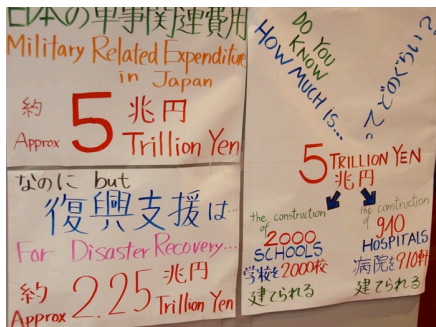 日本の軍事関連費用
Military Related Expenditure
in Japan
約 5 兆円
Approx Trillion Yen
なのに but
復興支援は…
For Disaster Recovery...
約 2.25 兆円
Approx Trillion Yen
DO YOU
KNOW
HOW MUCH IS...
5 TRILLION YEN
兆円
the construction
of
2000
SCHOOLS
学校を2000校
建てられる
the construction
of
910
HOSPITALS
病院を910軒
建てられる